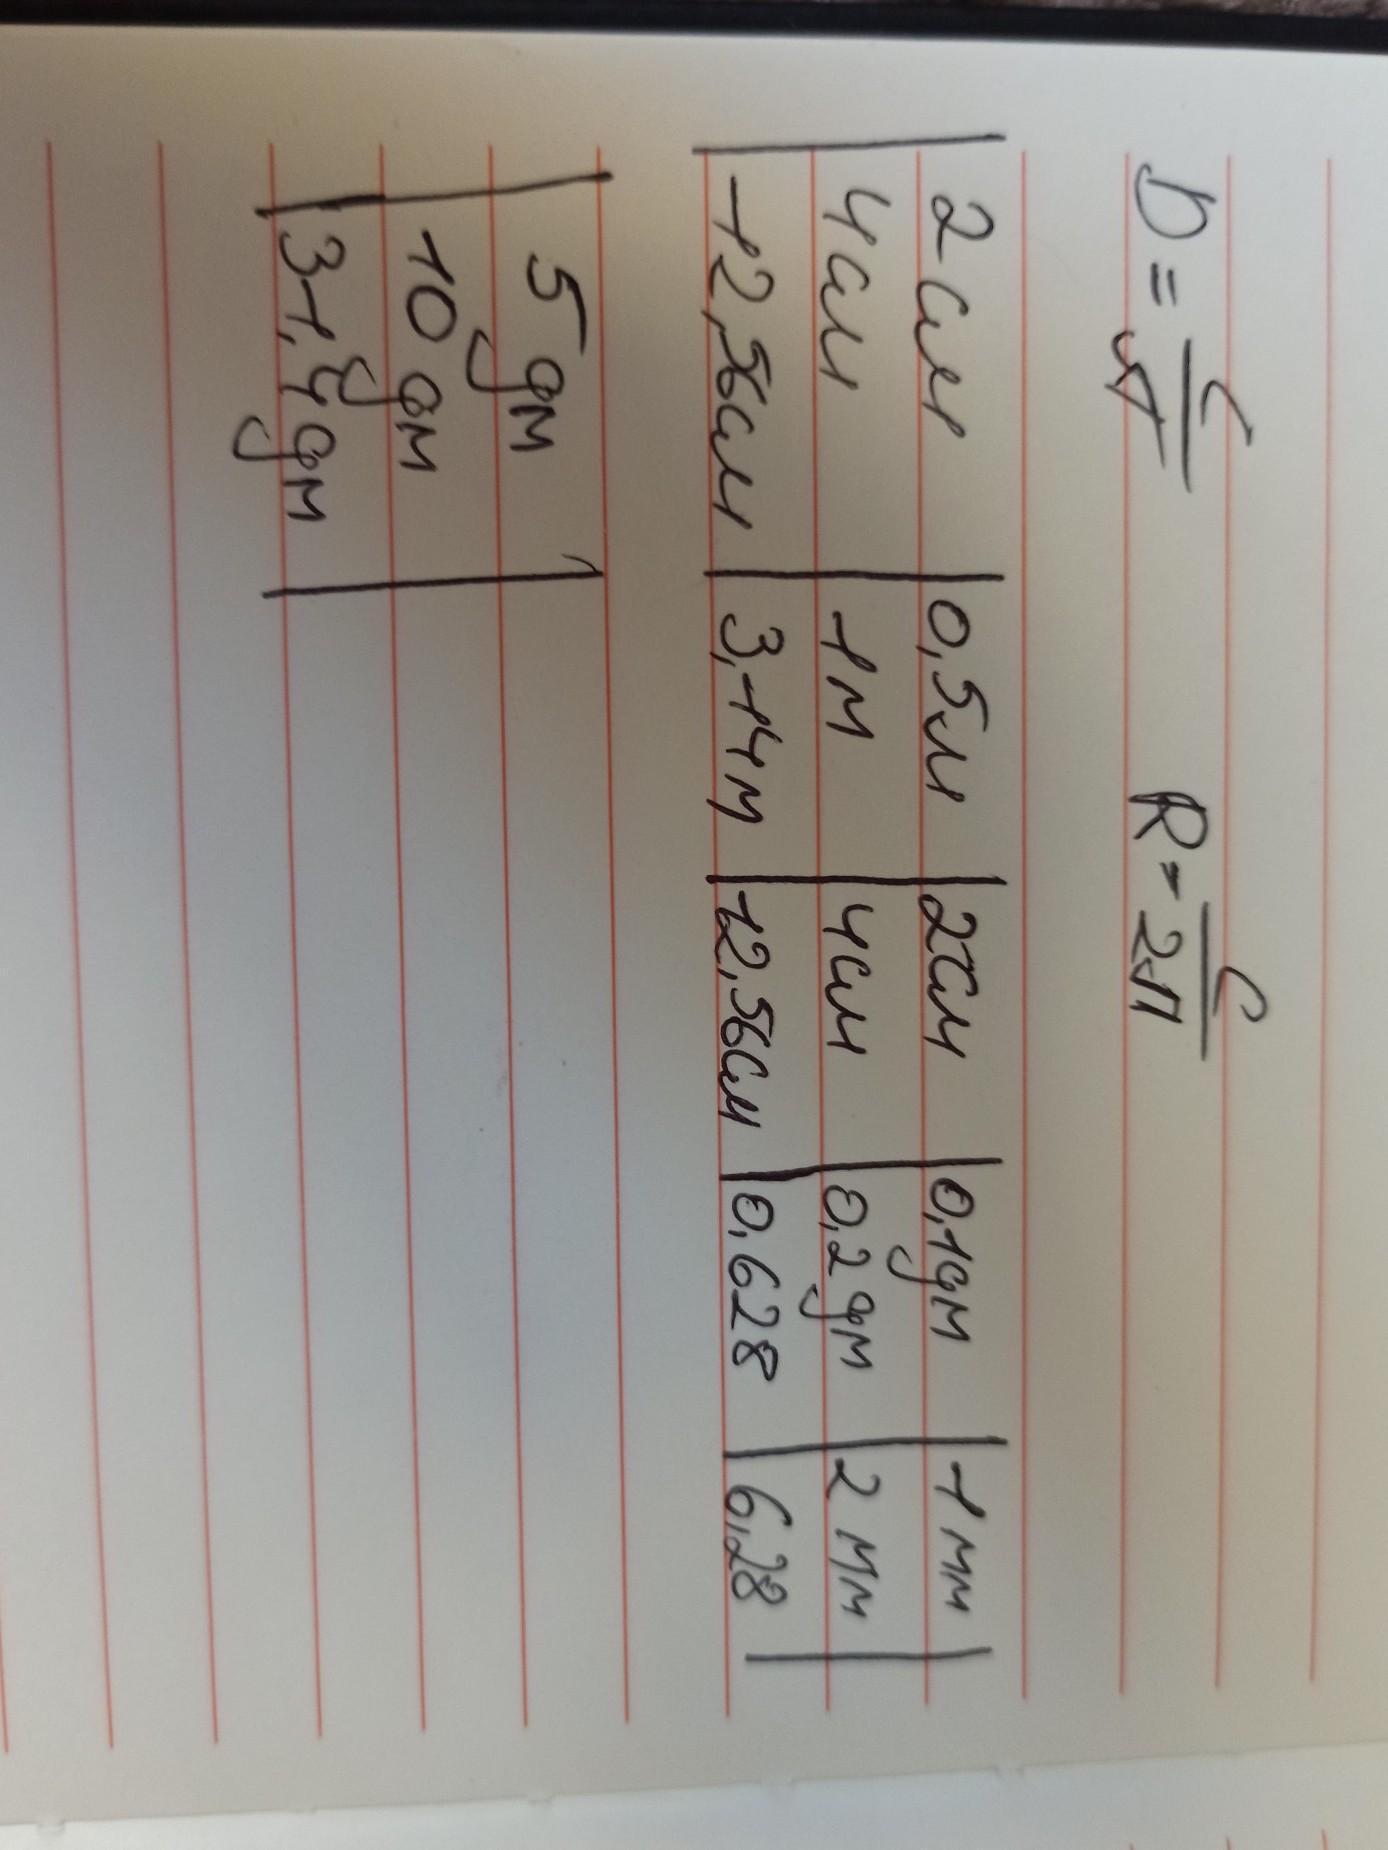 D = C/π R = C/2π
2 см | 0,5 м | 2 см | 0,1 дм | 1 мм
4 см | 1 м | 4 см | 0,2 дм | 2 мм
12,56 см | 3,14 м | 12,56 см | 0,628 | 6,28
5 дм
10 дм
31,4 дм